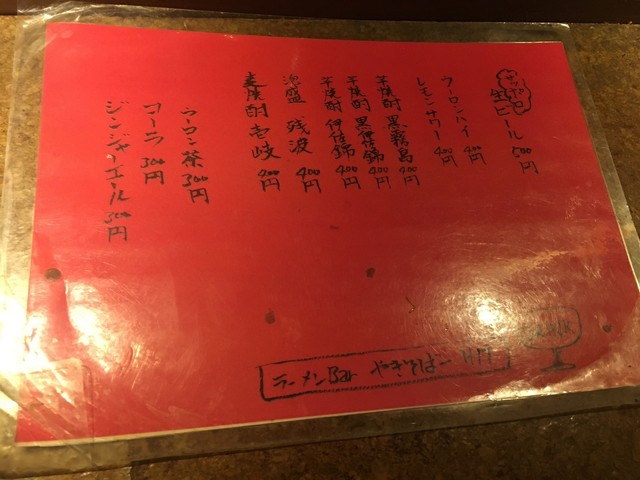 サッポロ
生ビール 500円
ウーロンハイ 400
レモンサワー 400
芋焼酎 黒霧島 400円
芋焼酎 黒伊佐錦 400円
芋焼酎 伊佐錦 400円
泡盛 残波 400円
麦焼酎 壱岐 400円
ウーロン茶 300円
コーラ 300円
ジンジャーエール 300円
ラーメンBar やきそばー